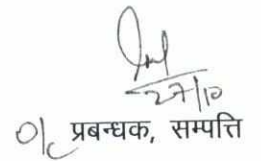 27/10
O/c प्रबन्धक, सम्पत्ति